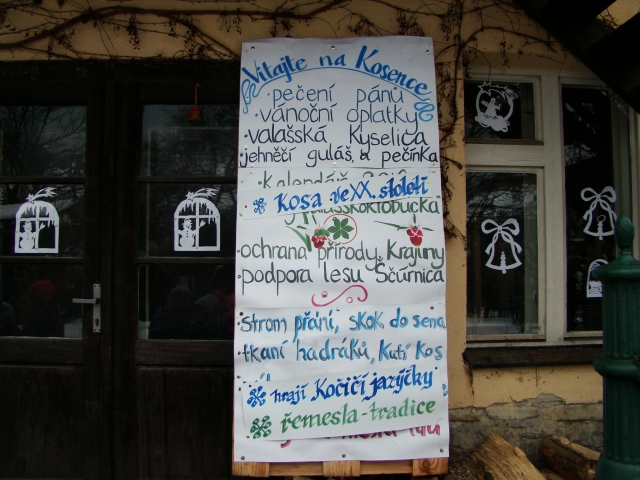 Vítajte na Kosence
·pečení pánů
·vánoční oplatky
·valašská Kyselica
jehněčí guláš, a pečínka
·Kalendář
Kosa ve XX. století
·ochrana přírody, Krajiny
·podpora lesu Ščúrnica
·strom přání, skok do sena
·tkaní hadráků, Kutí Kos
hrají Kočičí jazýčky
řemesla-tradice